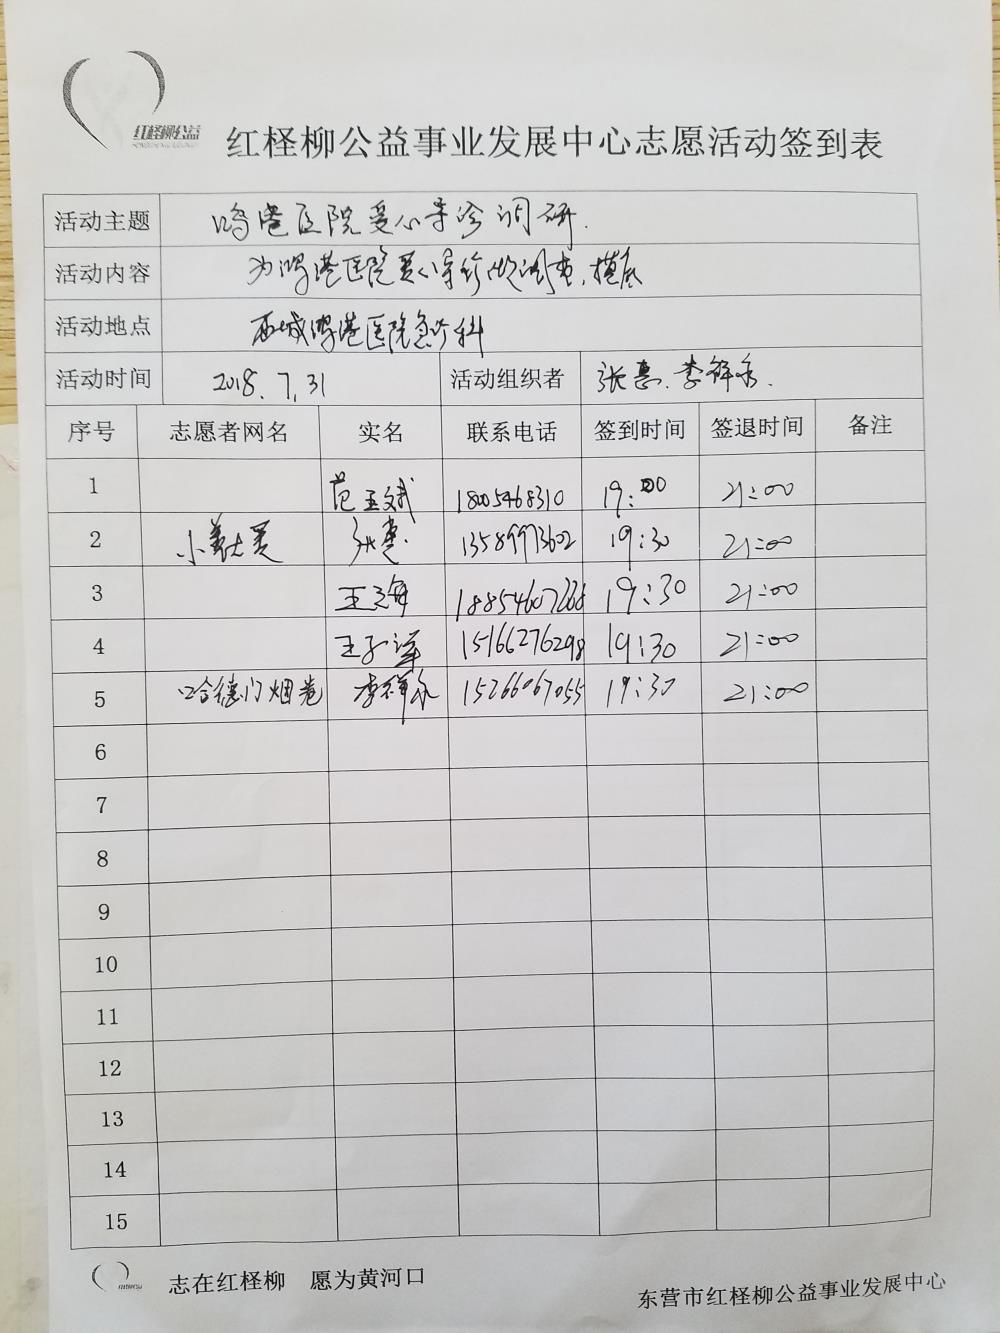 红柽柳公益
红柽柳公益事业发展中心志愿活动签到表
活动主题 鸿港医院爱心导诊调研.
活动内容 为鸿港医院爱心导诊做调查,摸底
活动地点 西城鸿港医院急诊科
活动时间 2018.7.31 活动组织者 张惠.李祥永.
序号 志愿者网名 实名 联系电话 签到时间 签退时间 备注
1 范玉斌 18005468310 19:00 21:00
2 小美大爱 张惠 13589973602 19:30 21:00
3 王海 19:30 21:00
4 王子洋 15166276298 19:30 21:00
5 哈德门烟卷 李祥永 15266067055 19:30 21:00
6
7
8
9
10
11
12
13
14
15
志在红柽柳 愿为黄河口
东营市红柽柳公益事业发展中心